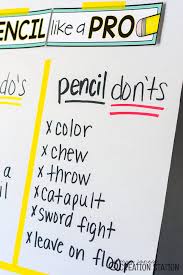 PENCIL like a PRO
do's
pencil don'ts
x color
x chew
x throw
x catapult
x sword fight
x leave on floo
CREATION STATION